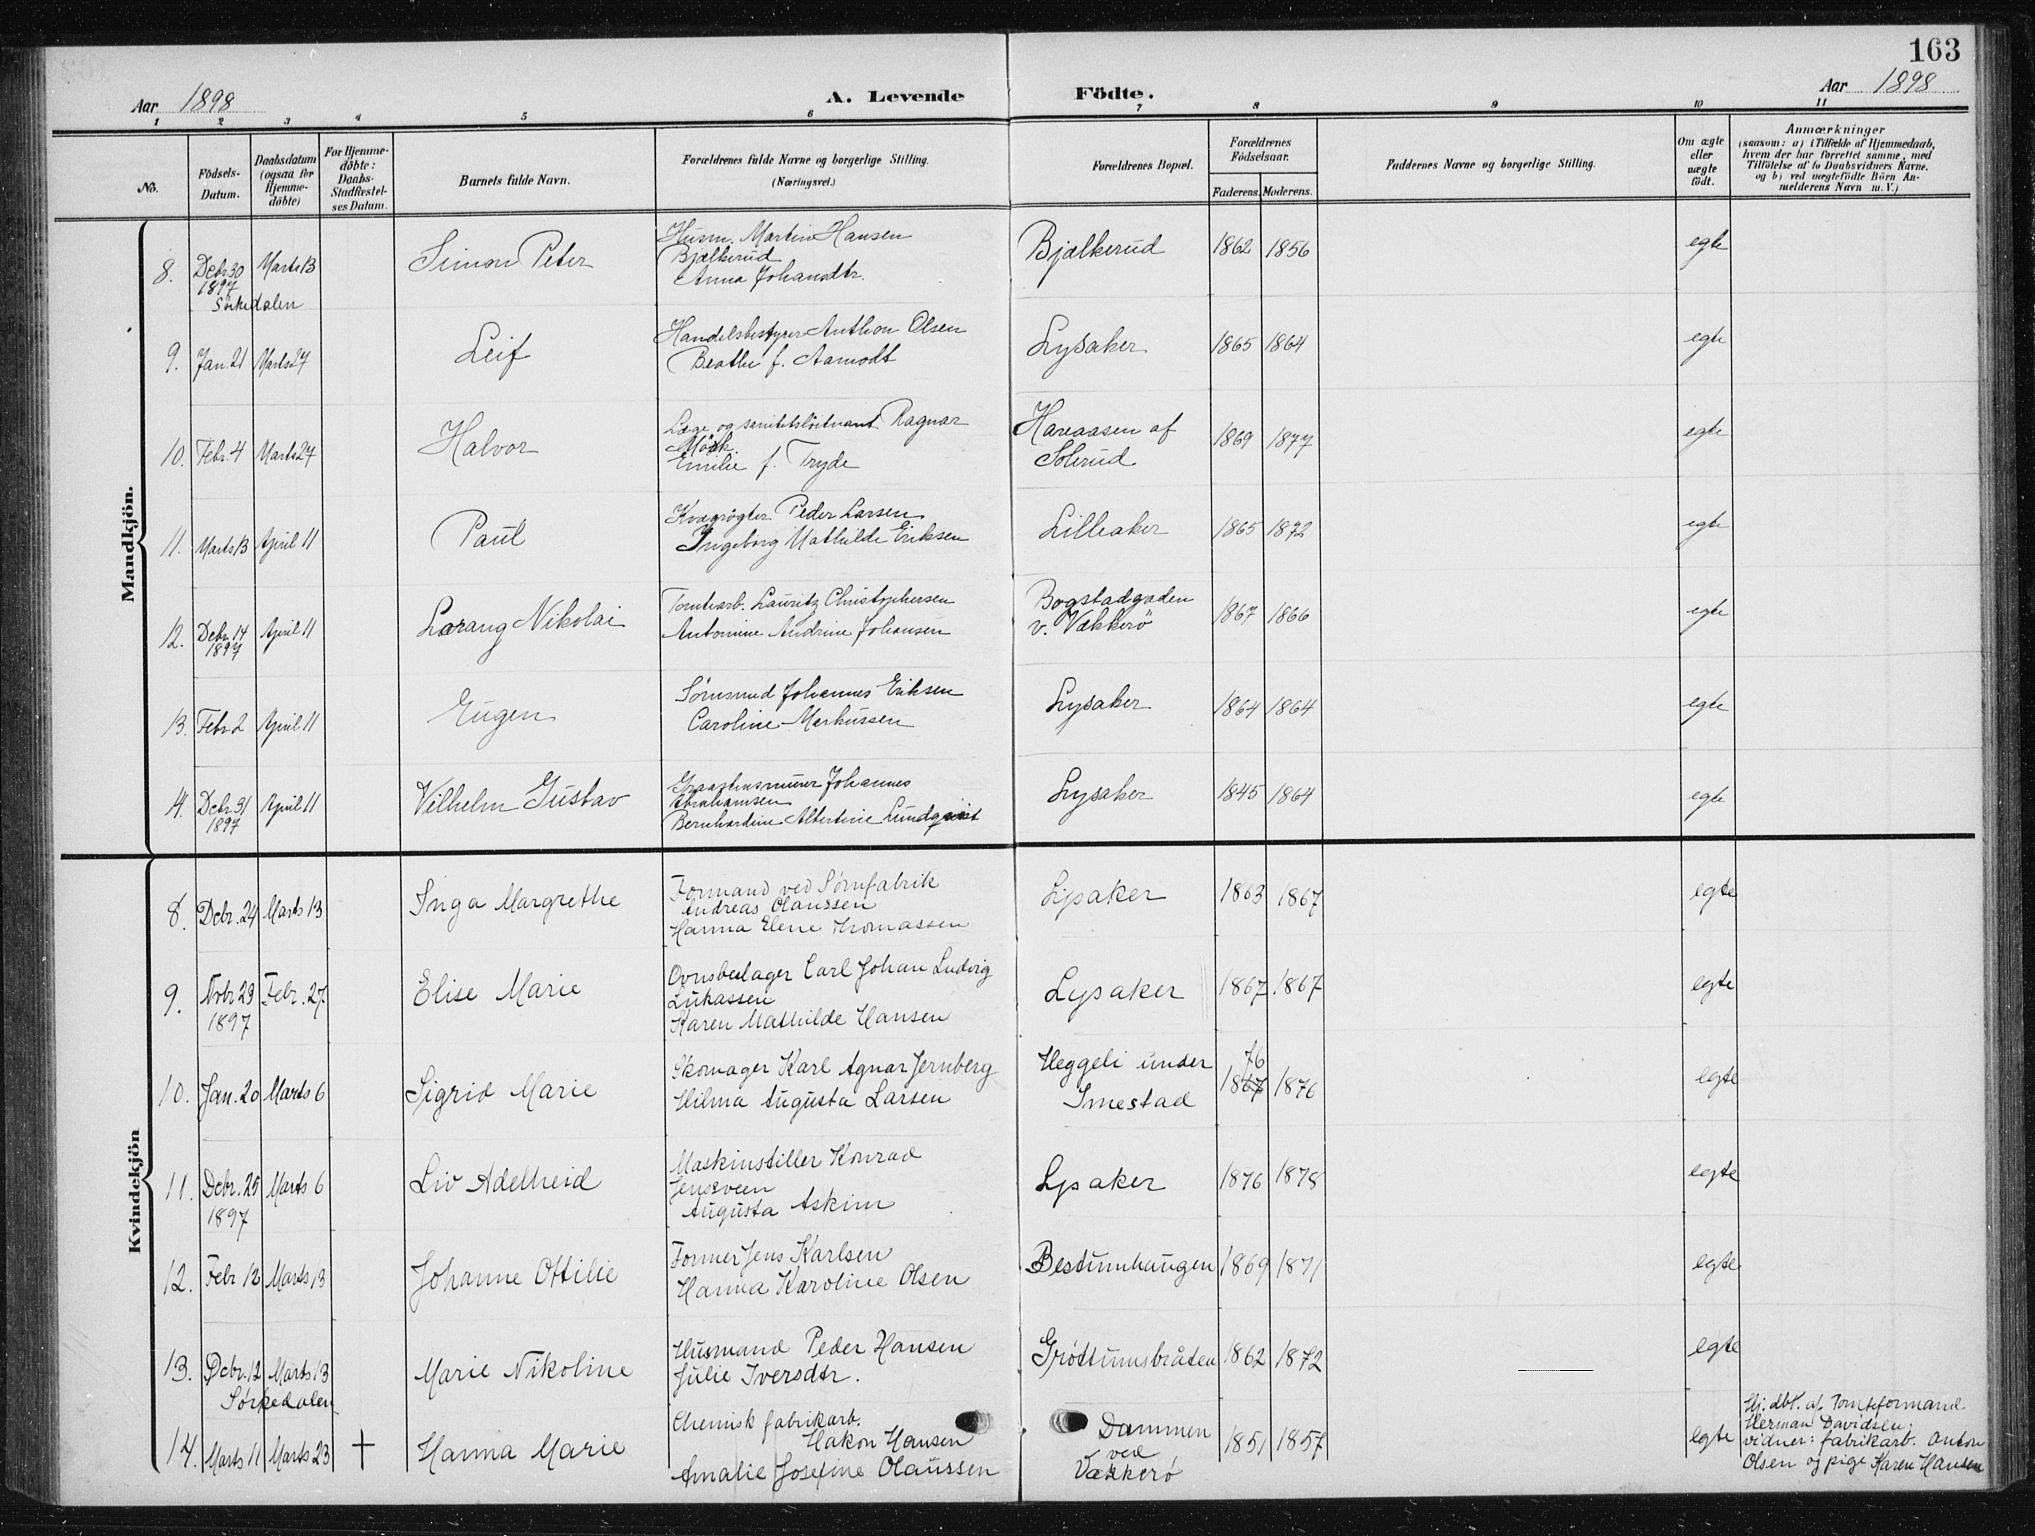 163
Aar 1898
A. Levende Födte.
Aar 1898
1 2 3 4 5 6 7 8 9 10 11
No.
Födsels-
Datum.
Daabsdatum
(ogsaa for
Hjemme-
döbte)
For Hjemme-
döbte:
Daabs-
Stadfæstel-
ses Datum.
Barnets fulde Navn.
Forældrenes fulde Navne og borgerlige Stilling.
(Næringsvei.)
Forældrenes Bopæl.
Forældrenes
Födselsaar.
Faderens. Moderens.
Faddernes Navne og borgerlige Stilling.
Om ægte
eller
uægte
födt.
Anmærkninger
(saasom: a) i Tilfælde af Hjemmedaab,
hvem der har forrettet samme, med
Tilföielse af to Daabsvidners Navne,
og b) ved uægtefödte Börn An-
melderens Navn m. V.)
Mandkjön.
8. Debr. 30 Marts 13 Simon Peter Husm. Martin Hansen Bjælkerud 1862 1856 egte
1897 Bjælkerud
Sörkedalen Anna Johansdtr.
9. Jan. 21 Marts 27 Leif Handelsbestyrer Anthon Olsen Lysaker 1865 1864 egte
Beathe f. Aamodt
10. Febr. 4 Marts 27 Halvor Læge og sanitetslöitnant Ragnar Hareaasen af 1869 1877 egte
Mörk. Sollerud
Emilie f. Tryde
11. Marts 13 April 11 Paul Kvægrögter Peder Larsen Lilleaker 1865 1872 egte
Ingeborg Mathilde Eriksen
12. Debr. 14 April 11 Larang Nikolai Tomtearb. Lauritz Christophersen Bogstadgaden 1867 1866 egte
1897 Antomine Andrine Johansen v. Vækkerö
13. Febr. 2 April 11 Eugen Sömsmed Johannes Eriksen Lysaker 1864 1864 egte
Caroline Markussen
14. Debr. 31 April 11 Vilhelm Gustav Graastensmurer Johannes Lysaker 1845 1864 egte
1897 Abrahamsen
Bernhardine Albertine Lundqvist
Kvindekjön
8. Debr. 24 Marts 13 Inga Margrethe Formand ved Sömfabrik Lysaker 1863 1867 egte
Andreas Olaussen
Hanna Elene Thomassen
9. Nobr 29 Febr. 27 Elise Marie Ovnsbeslager Carl Johan Ludvig Lysaker 1867 1867 egte
1897 Lukassen
Karen Mathilde Hansen
10. Jan. 20 Marts 6 Sigrid Marie Skomager Karl Agnar Jernberg Heggeli under 76 1867 1876 egte
Hilma Augusta Larsen Smestad
11. Debr. 25 Marts 6 Liv Adelheid Maskinstiller Konrad Lysaker 1876 1878 egte
1897 Jensveen
Augusta Askim
12. Febr 12 Marts 13 Johanne Ottilie Former Jens Karlsen Bestumhaugen 1869 1871 egte
Hanna Karoline Olsen
13. Debr. 12 Marts 13 Marie Nikoline Husmand Peder Hansen Grøttumsbråten 1862 1872 egte
Sørkedalen Julie Iversdtr.
14. Marts 11 Marts 23 + Hanna Marie Chemisk fabrikarb. Dammen 1851 1857 egte
Hakon Hansen ved
Amalie Josefine Olaussen Vækkerø
Hj. dbt. af Tomteformand
Herman Davidsen.
vidner: fabrikarb. Anton
Olsen og pige Karen Hansen